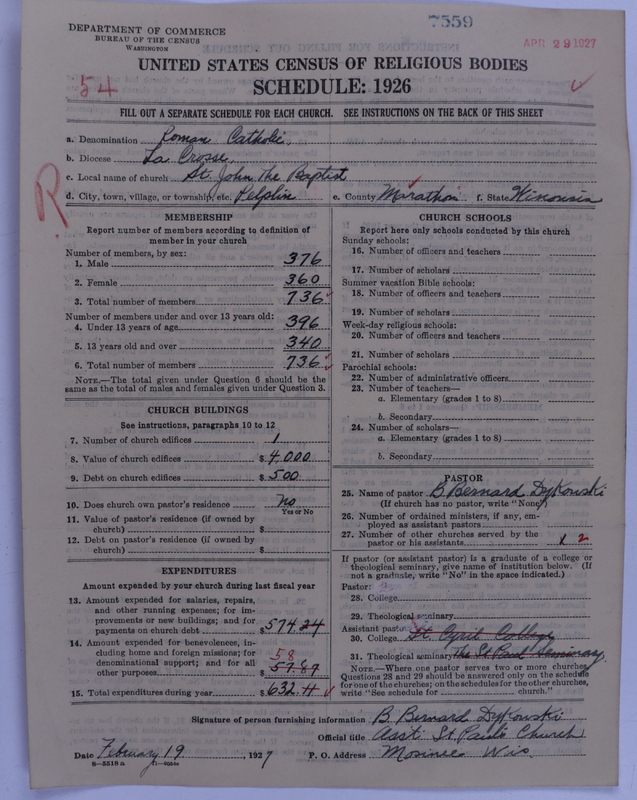 7559
DEPARTMENT OF COMMERCE
BUREAU OF THE CENSUS
WASHINGTON
APR 29 1927
UNITED STATES CENSUS OF RELIGIOUS BODIES
54
SCHEDULE: 1926
FILL OUT A SEPARATE SCHEDULE FOR EACH CHURCH. SEE INSTRUCTIONS ON THE BACK OF THIS SHEET
a. Denomination Roman Catholic
b. Diocese La Crosse
c. Local name of church St. John The Baptist
d. City, town, village, or township, etc. Pelplin e. County Marathon f. State Wisconsin
R
MEMBERSHIP
Report number of members according to definition of
member in your church
Number of members, by sex:
1. Male 376
2. Female 360
3. Total number of members 736
Number of members under and over 13 years old:
4. Under 13 years of age 396
5. 13 years old and over 340
6. Total number of members 736
NOTE.—The total given under Question 6 should be the
same as the total of males and females given under Question 3.
CHURCH BUILDINGS
See instructions, paragraphs 10 to 12
7. Number of church edifices 1
8. Value of church edifices $4000
9. Debt on church edifices $500
10. Does church own pastor's residence no
Yes or No
11. Value of pastor's residence (if owned by
church) $
12. Debt on pastor's residence (if owned by
church) $
EXPENDITURES
Amount expended by your church during last fiscal year
13. Amount expended for salaries, repairs,
and other running expenses; for im-
provements or new buildings; and for
payments on church debt $574.24
14. Amount expended for benevolences, in-
cluding home and foreign missions; for
denominational support; and for all 58
other purposes $57.87
15. Total expenditures during year $632.11
CHURCH SCHOOLS
Report here only schools conducted by this church
Sunday schools:
16. Number of officers and teachers
17. Number of scholars
Summer vacation Bible schools:
18. Number of officers and teachers
19. Number of scholars
Week-day religious schools:
20. Number of officers and teachers
21. Number of scholars
Parochial schools:
22. Number of administrative officers
23. Number of teachers—
a. Elementary (grades 1 to 8)
b. Secondary
24. Number of scholars—
a. Elementary (grades 1 to 8)
b. Secondary
PASTOR
25. Name of pastor B. Bernard Dykowski
(If church has no pastor, write "None")
26. Number of ordained ministers, if any, em-
ployed as assistant pastors
27. Number of other churches served by the
pastor or his assistants 1 2
If pastor (or assistant pastor) is a graduate of a college or
theological seminary, give name of institution below. (If
not a graduate, write "No" in the space indicated.)
Pastor:
28. College
29. Theological seminary
Assistant pastor:
30. College St. Cyril College
31. Theological seminary The St. Paul Seminary
NOTE.—Where one pastor serves two or more churches,
Questions 28 and 29 should be answered only on the schedule
for one of the churches; on the schedules for the other churches,
write "See schedule for church."
Signature of person furnishing information B. Bernard Dykowski
Official title Asst. St. Pauls Church
Date February 19, 1927 P. O. Address Mosinee Wis.
8—5518 a